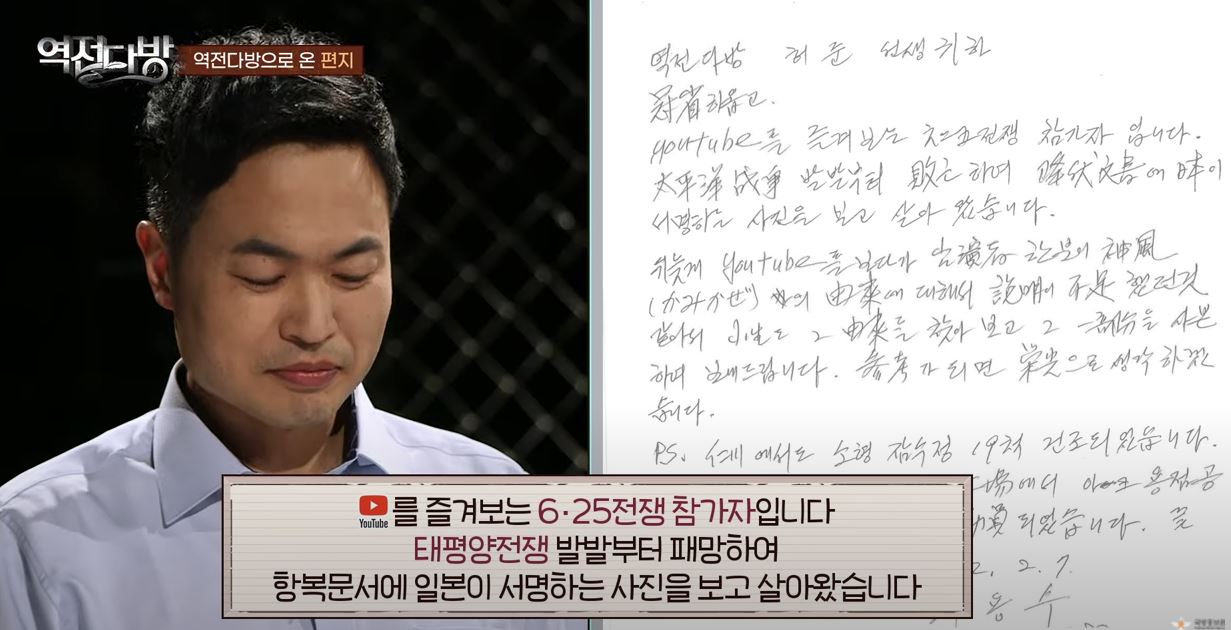 역전다방
역전다방으로 온 편지
역전다방 허준 선생 귀하
冠省하옵고.
youtube를 즐겨보는 六二五전쟁 참가자 입니다.
太平洋 战争 발발부터 敗亡하여 降伏文書에 日本이
서명하는 사진을 보고 살아 왔습니다.
뒤늦게 youtube를 보다가 神風
(かみかぜ) 의 由來에 대해서 說明이 不足했던것
같아서 小生도 그 由來를 찾아 보고 그 을 사본
하여 보내드립니다. 參考가 되면 榮光으로 생각 하겠
습니다.
PS. 仁川에서도 소형 잠수정 19척 건조되었습니다.
場에서 용접공
員 되었습니다. 끝
2. 2. 7.
YouTube를 즐겨보는 6·25전쟁 참가자입니다
태평양전쟁 발발부터 패망하여
항복문서에 일본이 서명하는 사진을 보고 살아왔습니다
국방홍보원